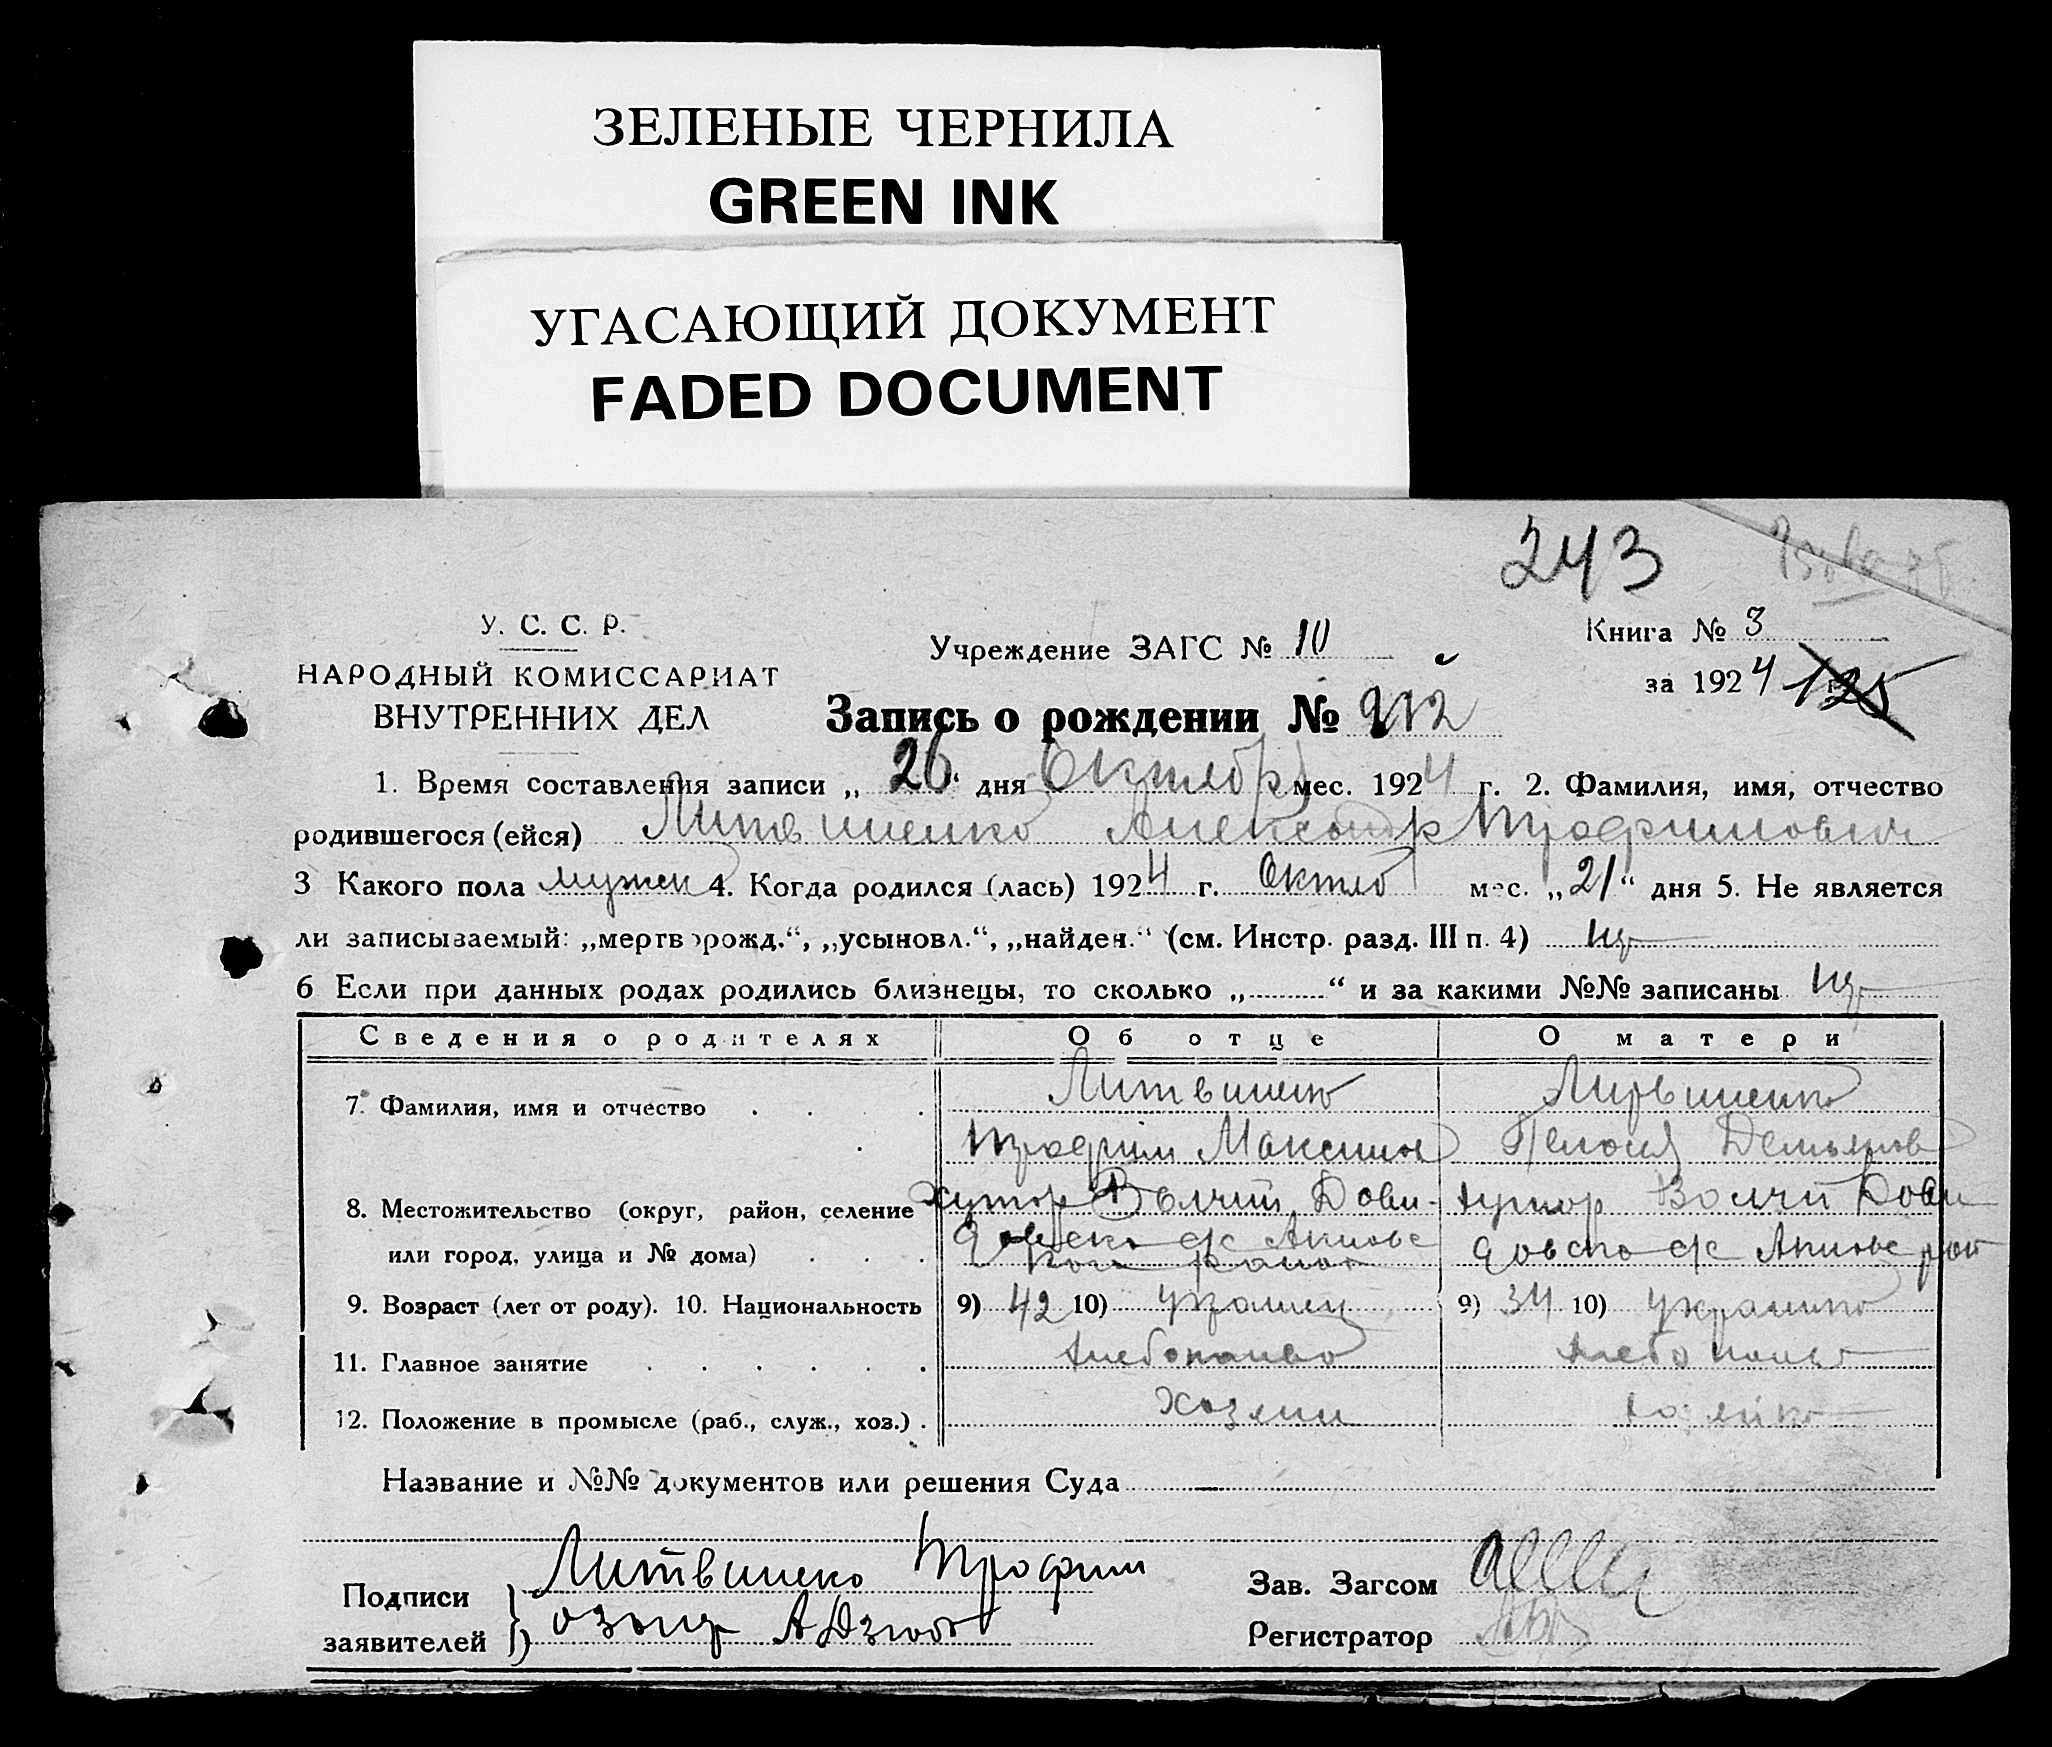 ЗЕЛЕНЫЕ ЧЕРНИЛА
GREEN INK
УГАСАЮЩИЙ ДОКУМЕНТ
FADED DOCUMENT
243
У. С. С. Р.
НАРОДНЫЙ КОМИССАРИАТ
ВНУТРЕННИХ ДЕЛ
Учреждение ЗАГС № 10
Книга № 3
за 1924 г. 125
Запись о рождении № 212
1. Время составления записи „ 26 “ дня Октябр мес. 1924 г. 2. Фамилия, имя, отчество
родившегося (ейся) Литвиненко Александр Трофимович
3 Какого пола мужск 4. Когда родился (лась) 1924 г. Октяб мес. „21“ дня 5. Не является
ли записываемый: „мертворожд.“, „усыновл.“, „найден.“ (см. Инстр. разд. III п. 4) нет
6 Если при данных родах родились близнецы, то сколько „..........“ и за какими №№ записаны нет
Сведения о родителях Об отце О матери
7. Фамилия, имя и отчество Литвиненко Литвиненко
Трофим Максимов Пелагия Демьянов
8. Местожительство (округ, район, селение хутор Волчий Дови- хутор Волчий Дови
или город, улица и № дома) довско с/с Акимов довско с/с Акимов рай
район
9. Возраст (лет от роду). 10. Национальность 9) 42 10) украинец 9) 34 10) украинка
11. Главное занятие хлебопашество хлебопаш
12. Положение в промысле (раб., служ., хоз.) хозяин хозяйка
Название и №№ документов или решения Суда
Подписи заявителей } Литвиненко Трофим
Зав. Загсом
Регистратор